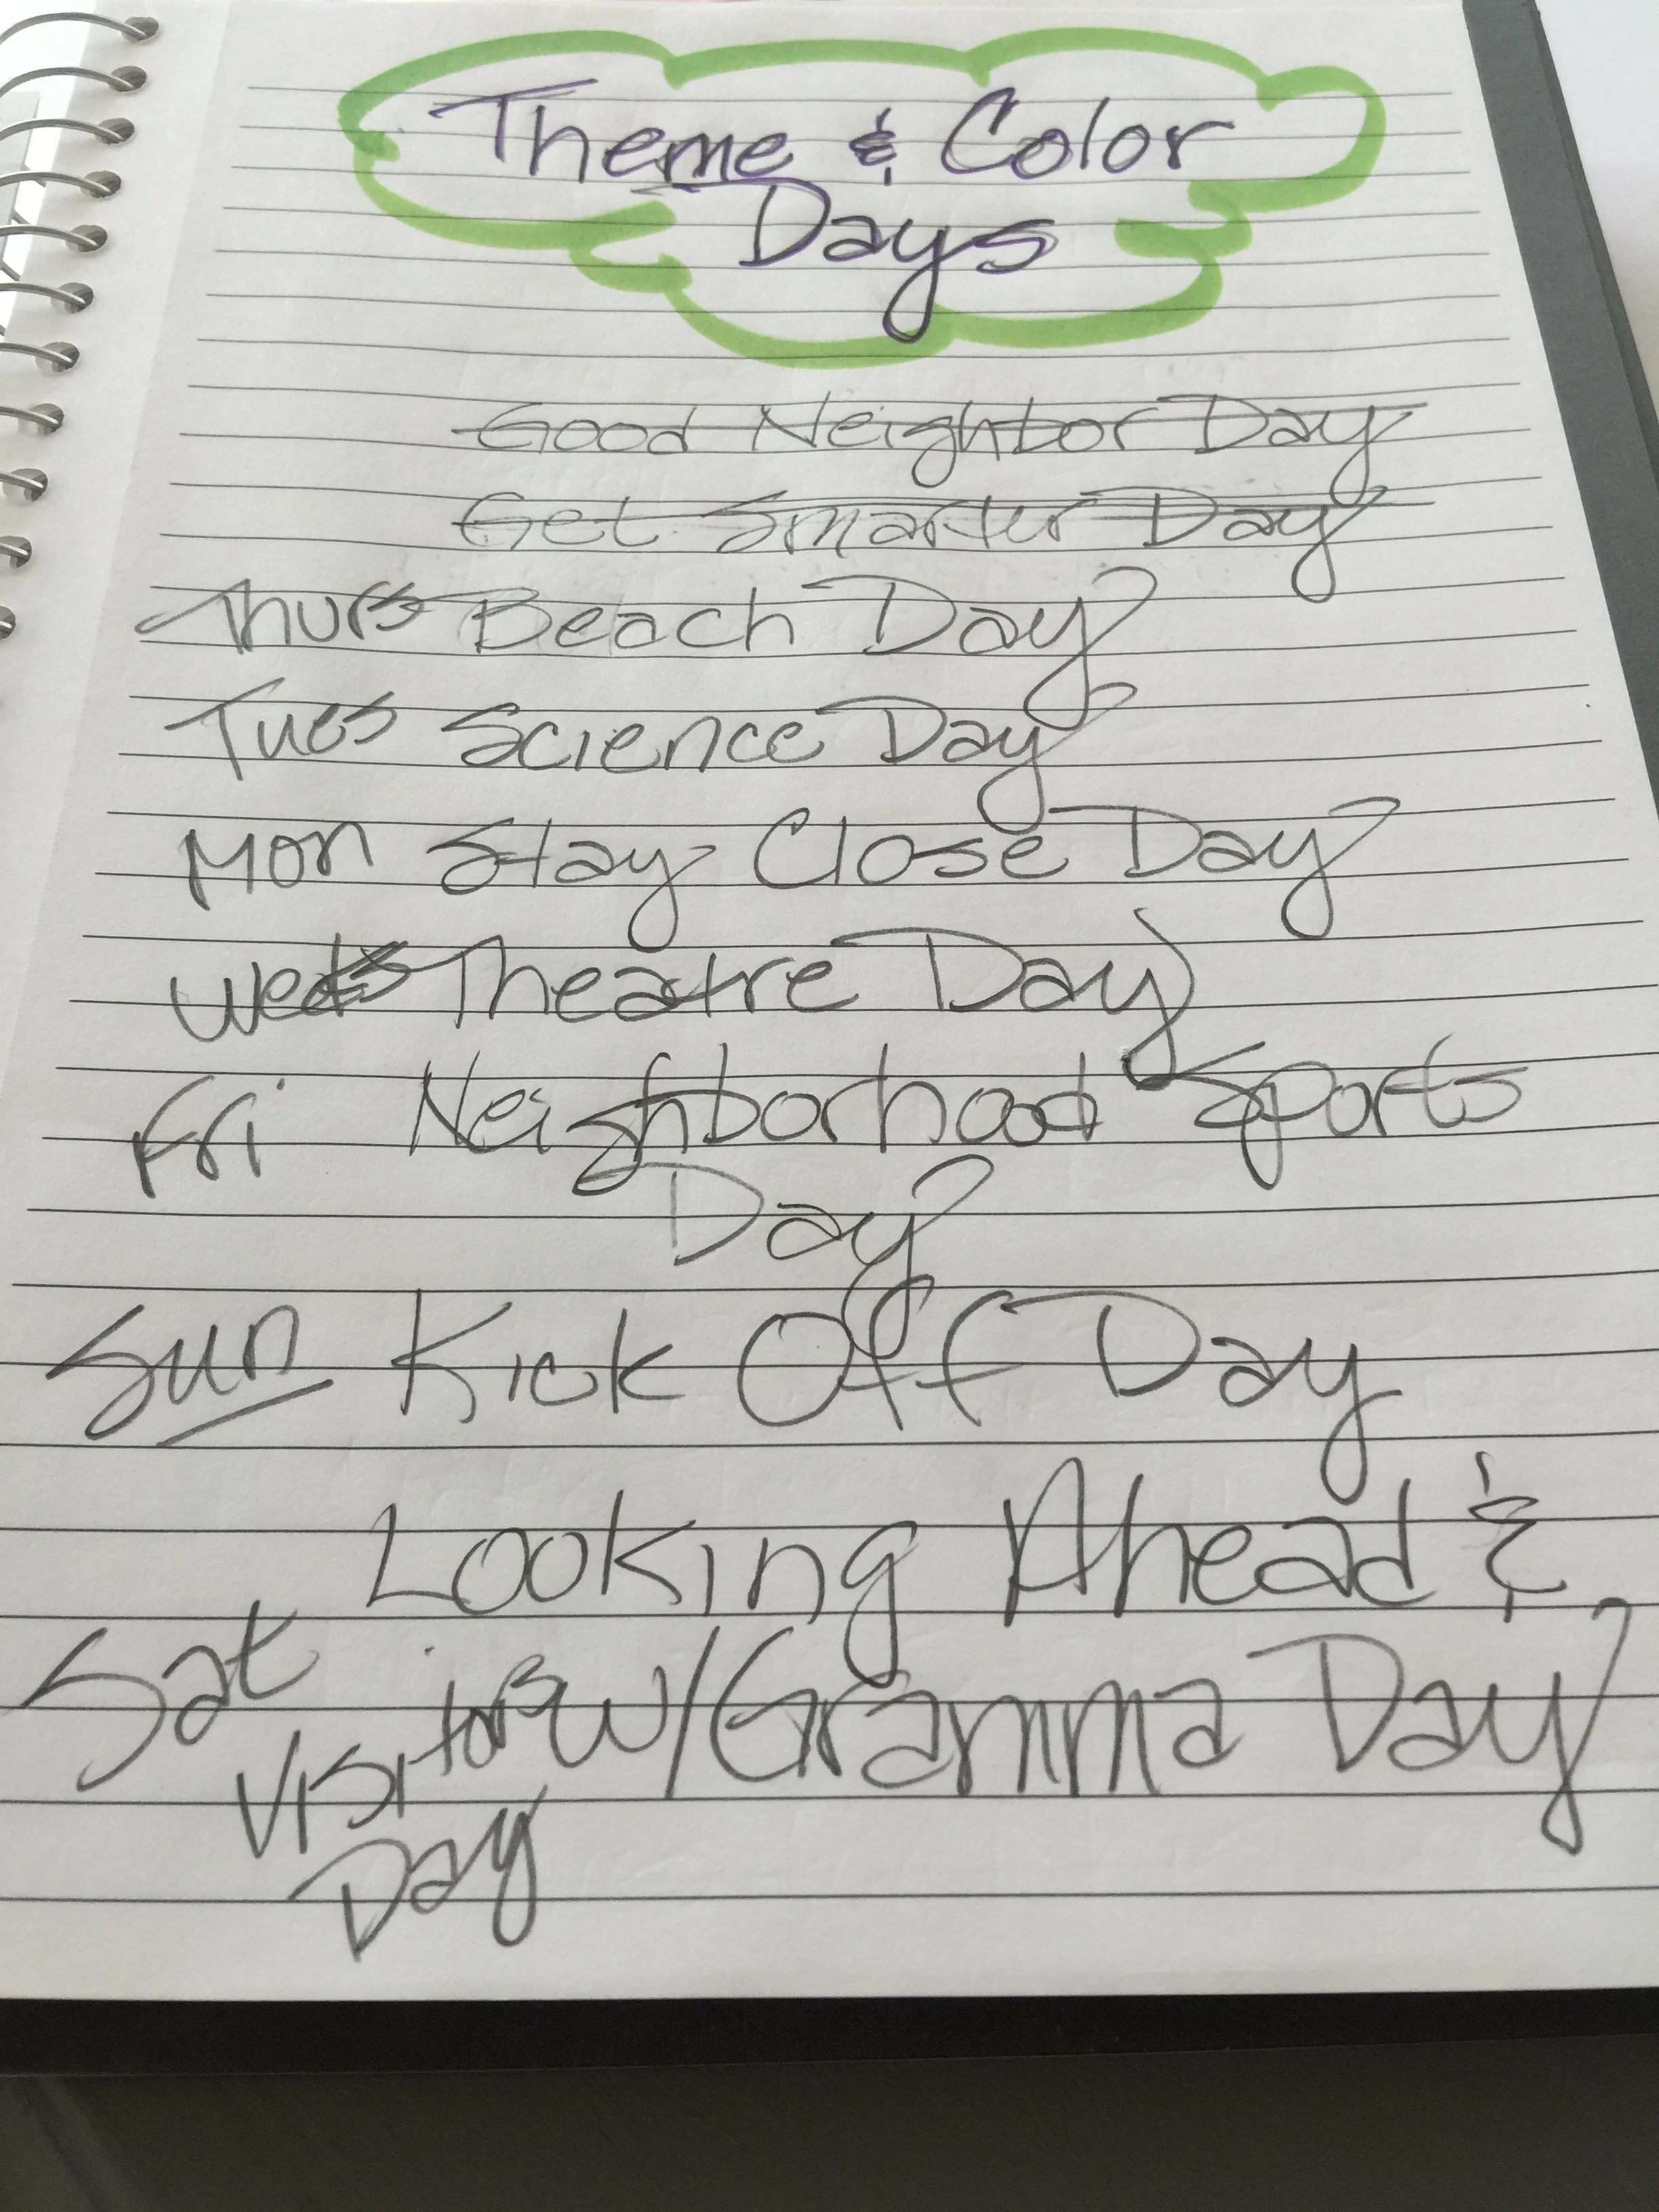 Theme & Color
Days
Good Neighbor Day
Get Smarter Day
Thurs Beach Day
Tues Science Day
Mon Stay Close Day
Wed Theatre Day
Fri Neighborhood Sports
Day
Sun Kick Off Day
Looking Ahead &
Sat Visitors w/Gramma Day
Day